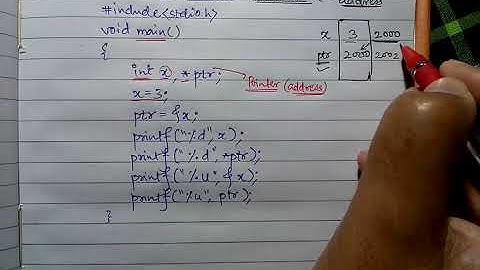 #include<stdio.h>
void main()
{
int x, *ptr;
Pointer (address)
x=3;
ptr = &x;
printf("%d", x);
printf("%d", *ptr);
printf("%u", &x);
printf("%u", ptr);
}
address
x 3 2000
ptr 2000 2002